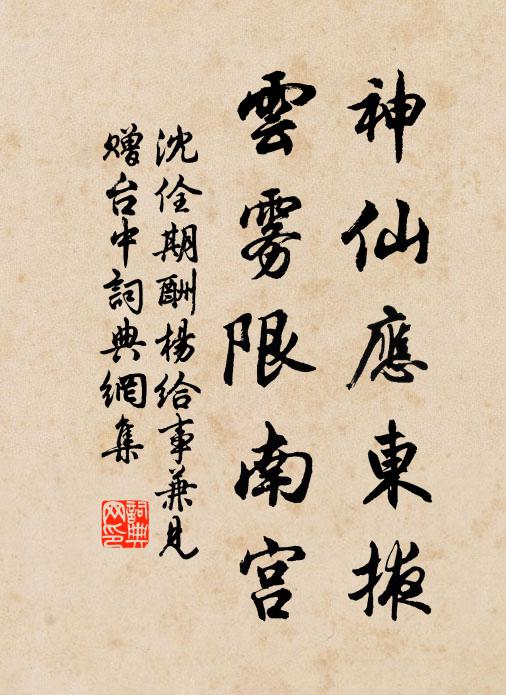 神仙應東掖
雲雾限南宫
沈佺期酬楊给事兼見
赠台中詞典網集
詞典网印